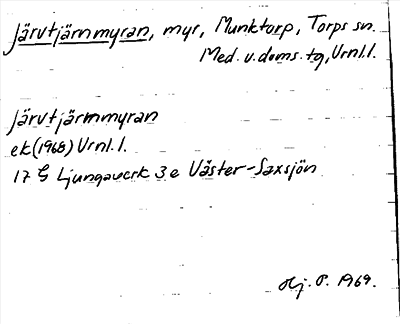 Järvtjärnmyran, myr, Munktorp, Torps sn.
Med. v. doms. tg, Vrnl. l.
Järvtjärnmyran
ek (1968) Vrnl. l.
17 G Ljungaverk 3 e Väster-Saxsjön
Hj. P. 1969.